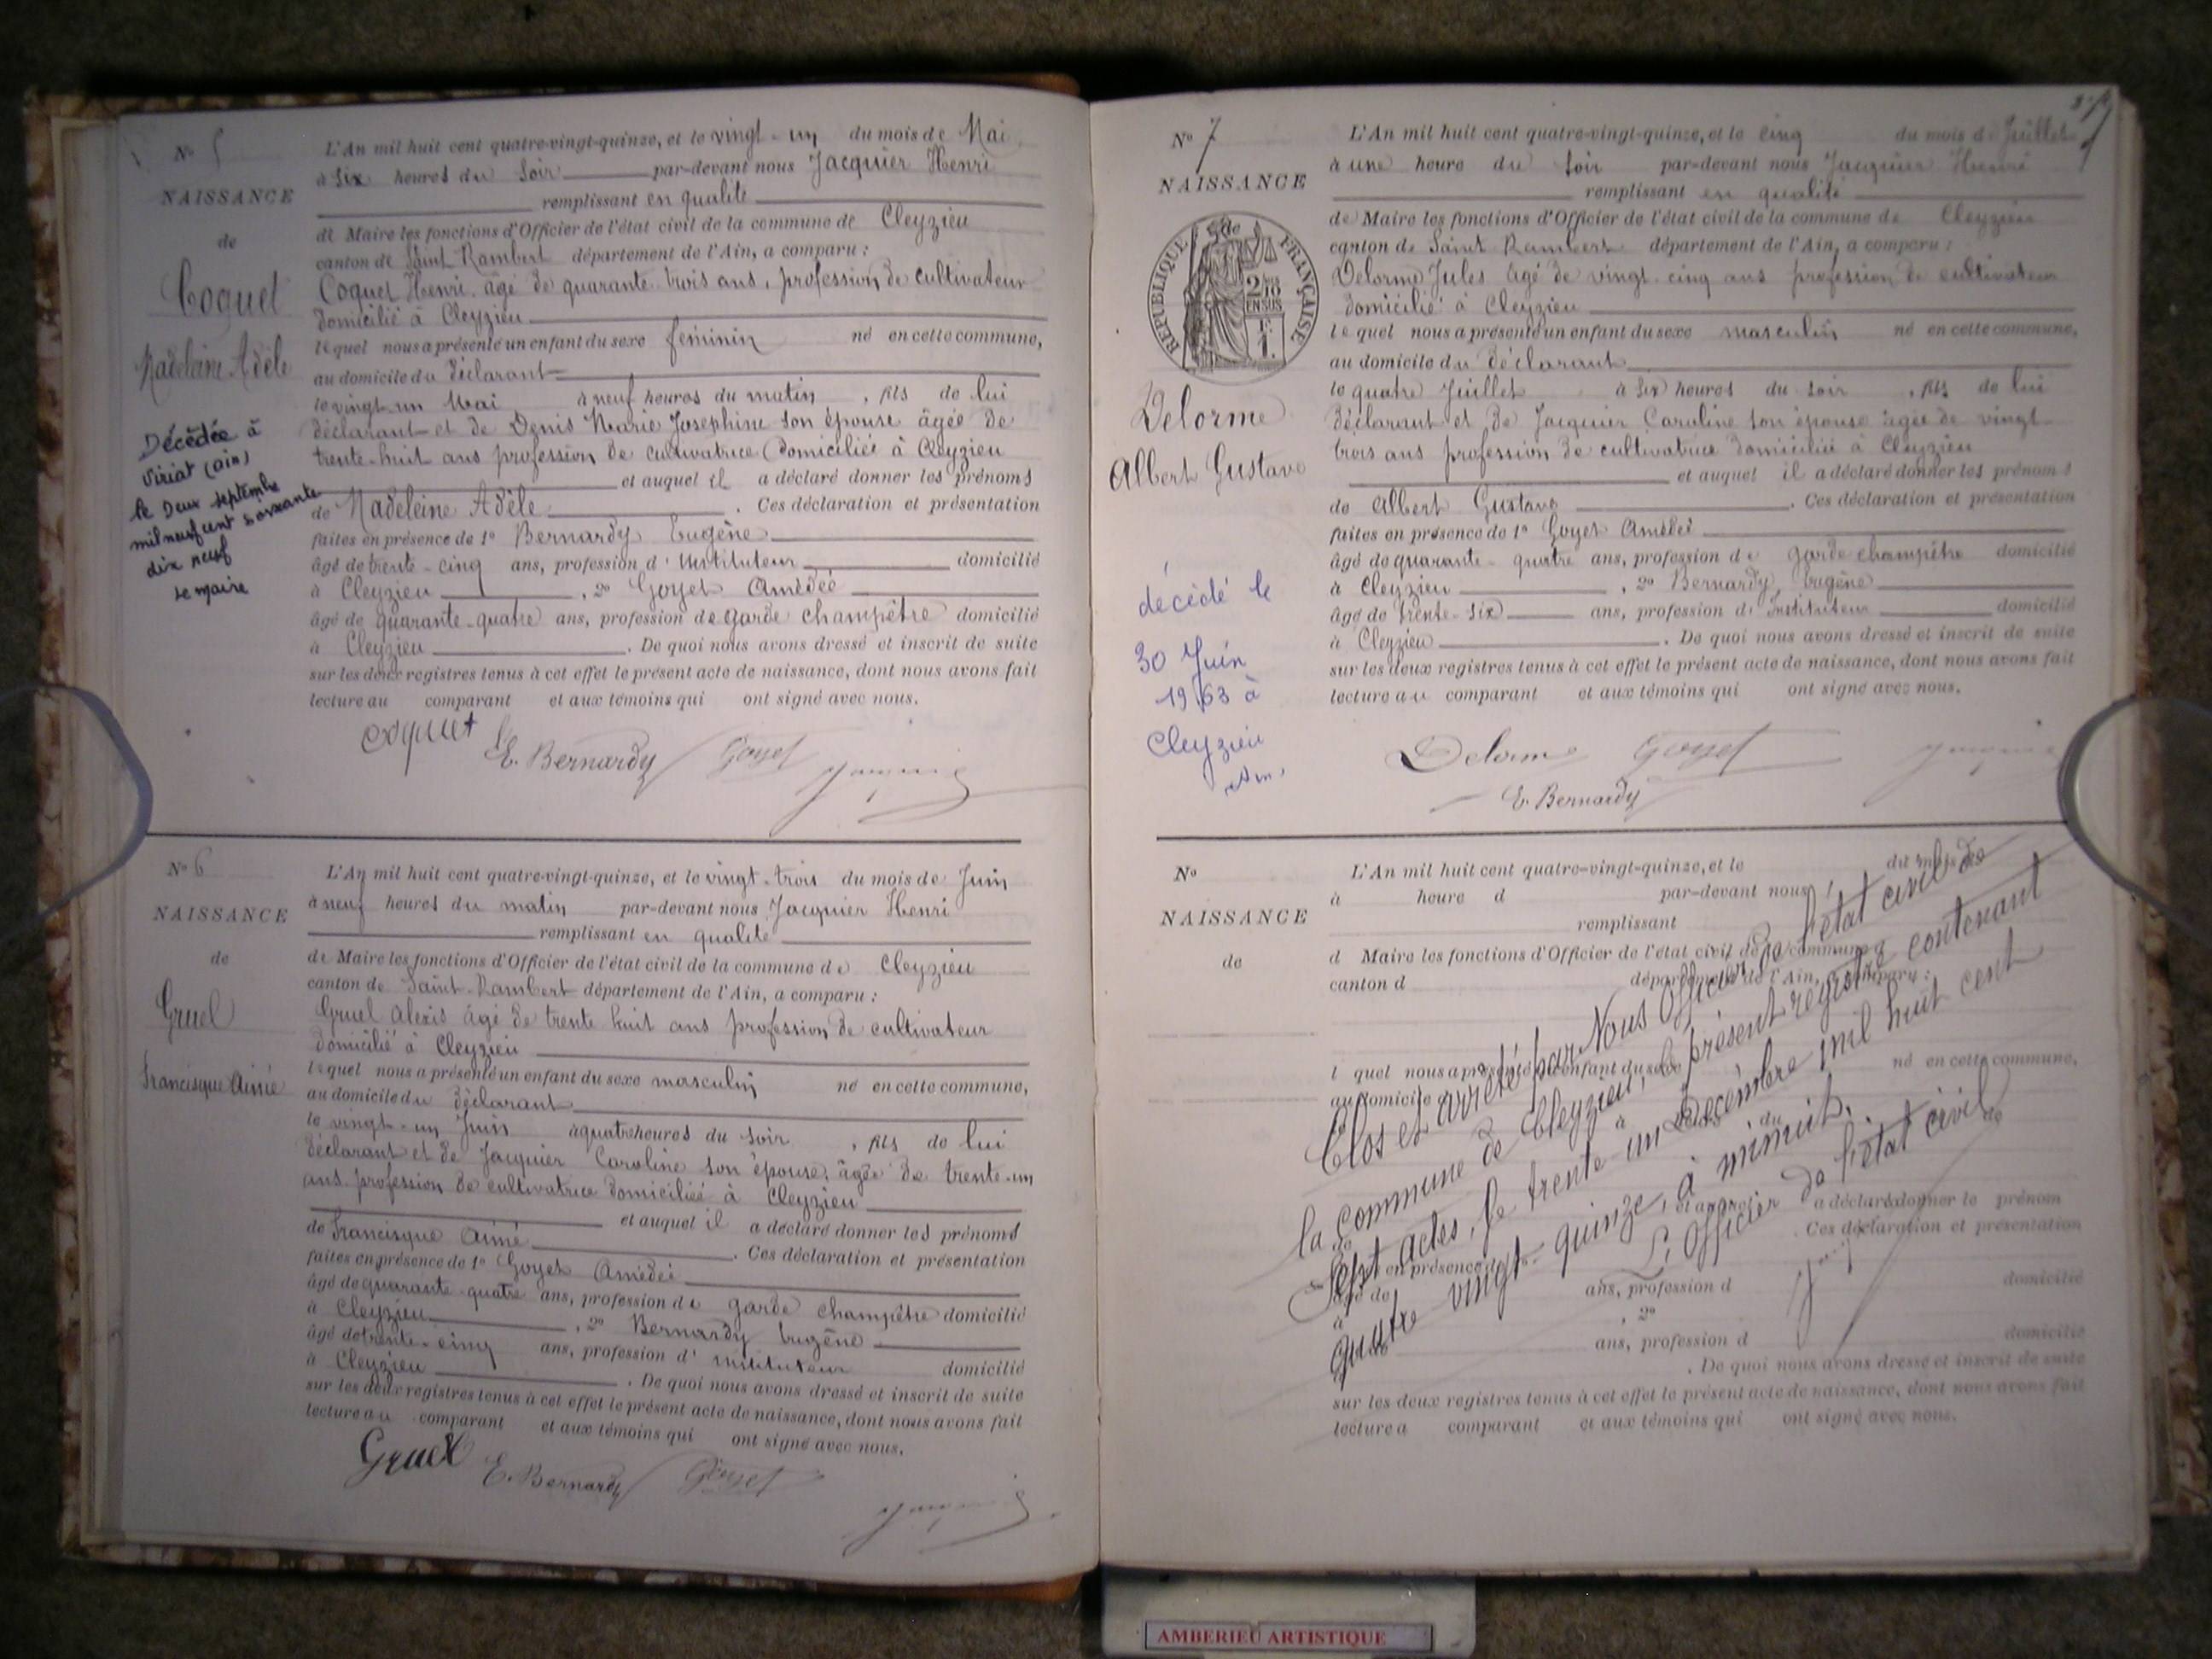 N° 5
NAISSANCE
de
Coquet
Madeleine Adèle
Décédée à
Viriat (ain)
le Deux septembre
mil neuf cent soixante
dix neuf
le maire
L'An mil huit cent quatre-vingt-quinze, et le vingt-un du mois de Mai
à six heures du soir par-devant nous Jacquier Henri
remplissant en qualité
de Maire les fonctions d'Officier de l'état civil de la commune de Cleyzieu
canton de Saint Rambert département de l'Ain, a comparu :
Coquet Henri âgé de quarante-trois ans, profession de cultivateur
domicilié à Cleyzieu
lequel nous a présenté un enfant du sexe féminin né en cette commune,
au domicile du déclarant
le vingt-un Mai à neuf heures du matin, fils de lui
déclarant et de Denis Marie Josephine son épouse âgée de
trente-huit ans profession de cultivatrice domiciliée à Cleyzieu
et auquel il a déclaré donner les prénoms
de Madeleine Adèle. Ces déclaration et présentation
faites en présence de 1° Bernardy Eugène
âgé de trente-cinq ans, profession d'Instituteur domicilié
à Cleyzieu, 2° Goyet Amédée
âgé de quarante-quatre ans, profession de garde champêtre domicilié
à Cleyzieu. De quoi nous avons dressé et inscrit de suite
sur les deux registres tenus à cet effet le présent acte de naissance, dont nous avons fait
lecture au comparant et aux témoins qui ont signé avec nous.
Coquet E. Bernardy Goyet
N° 6
NAISSANCE
de
Gruel
Francisque Aimé
L'An mil huit cent quatre-vingt-quinze, et le vingt-trois du mois de Juin
à neuf heures du matin par-devant nous Jacquier Henri
remplissant en qualité
de Maire les fonctions d'Officier de l'état civil de la commune de Cleyzieu
canton de Saint-Rambert département de l'Ain, a comparu :
Gruel Alexis âgé de trente huit ans profession de cultivateur
domicilié à Cleyzieu
lequel nous a présenté un enfant du sexe masculin né en cette commune,
au domicile du déclarant
le vingt-un Juin à quatre heures du soir, fils de lui
déclarant et de Jacquier Caroline son épouse, âgée de trente-un
ans profession de cultivatrice domiciliée à Cleyzieu
et auquel il a déclaré donner les prénoms
de Francisque Aimé. Ces déclaration et présentation
faites en présence de 1° Goyet Amédée
âgé de quarante-quatre ans, profession de garde champêtre domicilié
à Cleyzieu, 2° Bernardy Eugène
âgé de trente-cinq ans, profession d'instituteur domicilié
à Cleyzieu. De quoi nous avons dressé et inscrit de suite
sur les deux registres tenus à cet effet le présent acte de naissance, dont nous avons fait
lecture au comparant et aux témoins qui ont signé avec nous.
Gruel E. Bernardy Goyet
N° 7
NAISSANCE
de
RÉPUBLIQUE FRANÇAISE
2/10
EN SUS
1 F.
Delorme
Albert Gustave
décédé le
30 Juin
1963 à
Cleyzieu
L'An mil huit cent quatre-vingt-quinze, et le cinq du mois de Juillet
à une heure du soir par-devant nous Jacquier Henri
remplissant en qualité
de Maire les fonctions d'Officier de l'état civil de la commune de Cleyzieu
canton de Saint Rambert département de l'Ain, a comparu :
Delorme Jules âgé de vingt-cinq ans profession de cultivateur
domicilié à Cleyzieu
lequel nous a présenté un enfant du sexe masculin né en cette commune,
au domicile du déclarant
le quatre Juillet à six heures du soir, fils de lui
déclarant et de Jacquier Caroline son épouse âgée de vingt
trois ans profession de cultivatrice domiciliée à Cleyzieu
et auquel il a déclaré donner les prénoms
de Albert Gustave. Ces déclaration et présentation
faites en présence de 1° Goyet Amédée
âgé de quarante-quatre ans, profession de garde champêtre domicilié
à Cleyzieu, 2° Bernardy Eugène
âgé de trente-six ans, profession d'Instituteur domicilié
à Cleyzieu. De quoi nous avons dressé et inscrit de suite
sur les deux registres tenus à cet effet le présent acte de naissance, dont nous avons fait
lecture au comparant et aux témoins qui ont signé avec nous.
Delorme Goyet
E. Bernardy
N°
NAISSANCE
de
L'An mil huit cent quatre-vingt-quinze, et le du mois de
à heure d par-devant nous
remplissant
d Maire les fonctions d'Officier de l'état civil de la commune d
canton d département de l'Ain, a comparu :
l quel nous a présenté un enfant du sexe né en cette commune,
au domicile d
le à heure du de
et auquel a déclaré donner le prénom
de. Ces déclaration et présentation
faites en présence de
âgé de ans, profession d domicilié
à, 2°
âgé de ans, profession d domicilié
à. De quoi nous avons dressé et inscrit de suite
sur les deux registres tenus à cet effet le présent acte de naissance, dont nous avons fait
lecture a comparant et aux témoins qui ont signé avec nous.
Clos et arrêté par Nous Officier de l'état civil de
la commune de Cleyzieu, le présent registre contenant
Sept actes, le trente-un Décembre mil huit cent
quatre vingt-quinze, à minuit.
L'Officier de l'état civil
AMBERIEU ARTISTIQUE